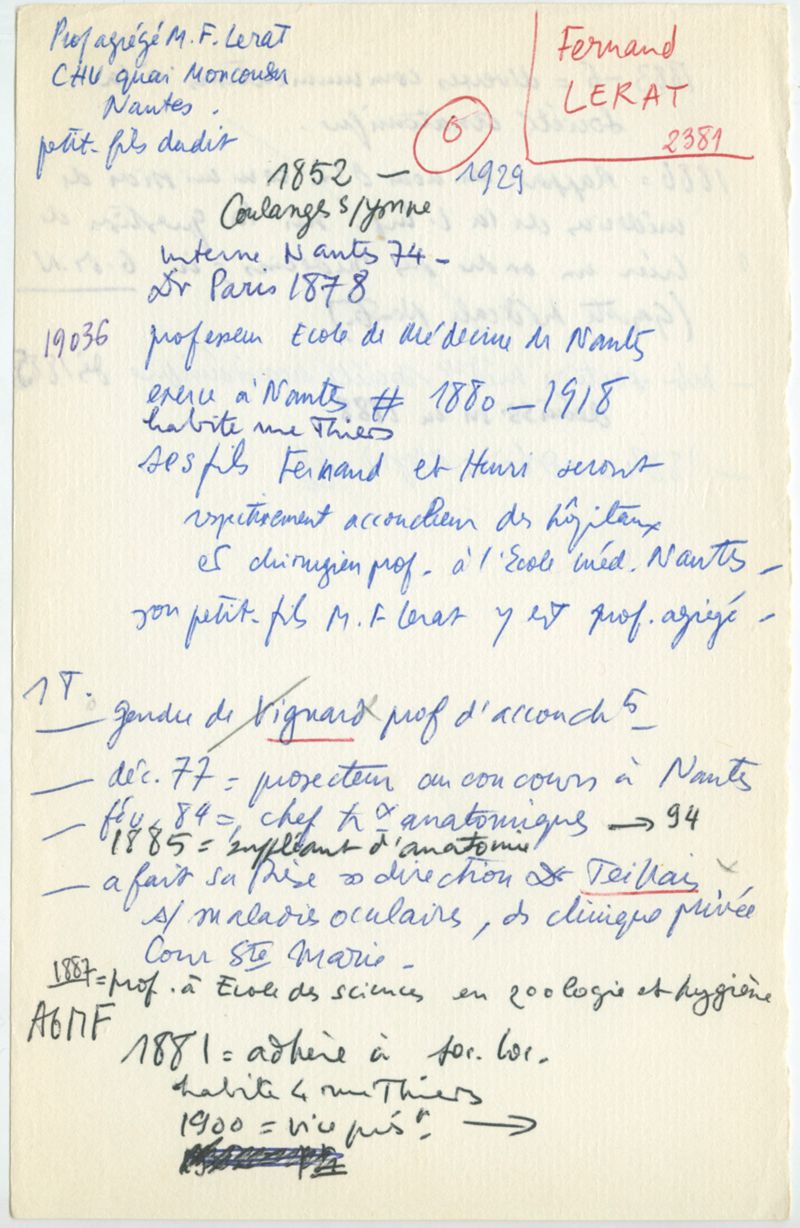 Prof agrégé M. F. Lerat
CHU quai Moncousu
Nantes.
petit-fils dudit
Fernand
LERAT
2381
6
1852 — 1929
Coulanges s/yonne
interne Nantes 74 -
Dr Paris 1878
19036 professeur Ecole de Médecine de Nantes
exerce à Nantes # 1880 - 1918
habite rue Thiers
ses fils Fernand et Henri seront
respectivement accoucheur des hôpitaux
et chirurgien prof. à l'Ecole méd. Nantes -
son petit-fils M. F Lerat y est prof. agrégé -
1T.
— gendre de Vignard x prof d'accoucht s -
— déc. 77 = prosecteur au concours à Nantes
— fév. 84 =, chef tr x anatomiques → 94
1885 = suppléant d'anatomie
— a fait sa thèse direction Dr Teillais x
s/ maladies oculaires, ds clinique privée
Cour Ste Marie -
1887 = prof. à Ecole des sciences en zoologie et hygiène
AGMF
1881 = adhère à soc. loc.
habite 4 rue Thiers
1900 = vice prést. →